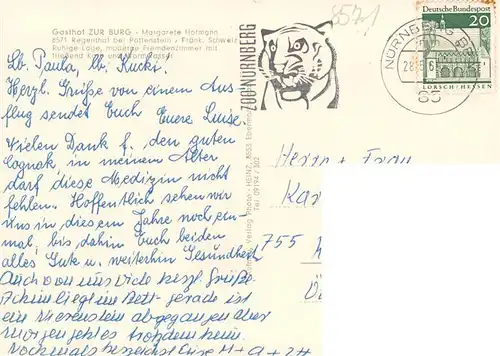 Gasthof ZUR BURG - Margarete Hofmann
8571 Regenthal bei Pottenstein - Fränk. Schweiz
Ruhige Lage, moderne Fremdenzimmer mit
fließend Kalt- und Warmwasser
Lb. Paula, lb. Kucki.
Herzl. Grüße von einem Aus-
flug sendet Euch Eure Luise.
Vielen Dank f. den guten
Cognak, in meinem Alter
darf diese Medizin nicht
fehlen. Hoffentlich sehen wir
uns in diesem Jahre noch ein-
mal, bis dahin Euch beiden
alles Gute u. weiterhin Gesundheit
Auch von uns viele herzl. Grüße.
Achim liegt im Bett - gerade ist
ein Nierenstein abgegangen aber
morgen geht es trotzdem heim.
Nochmals herzlichst
ZOO-NÜRNBERG
8571
NÜRNBERG
85
Deutsche Bundespost
20
LORSCH/HESSEN
Verlag Photo-HEINZ, 8553
Tel. 09194/302
Herrn + Frau
Kar
755